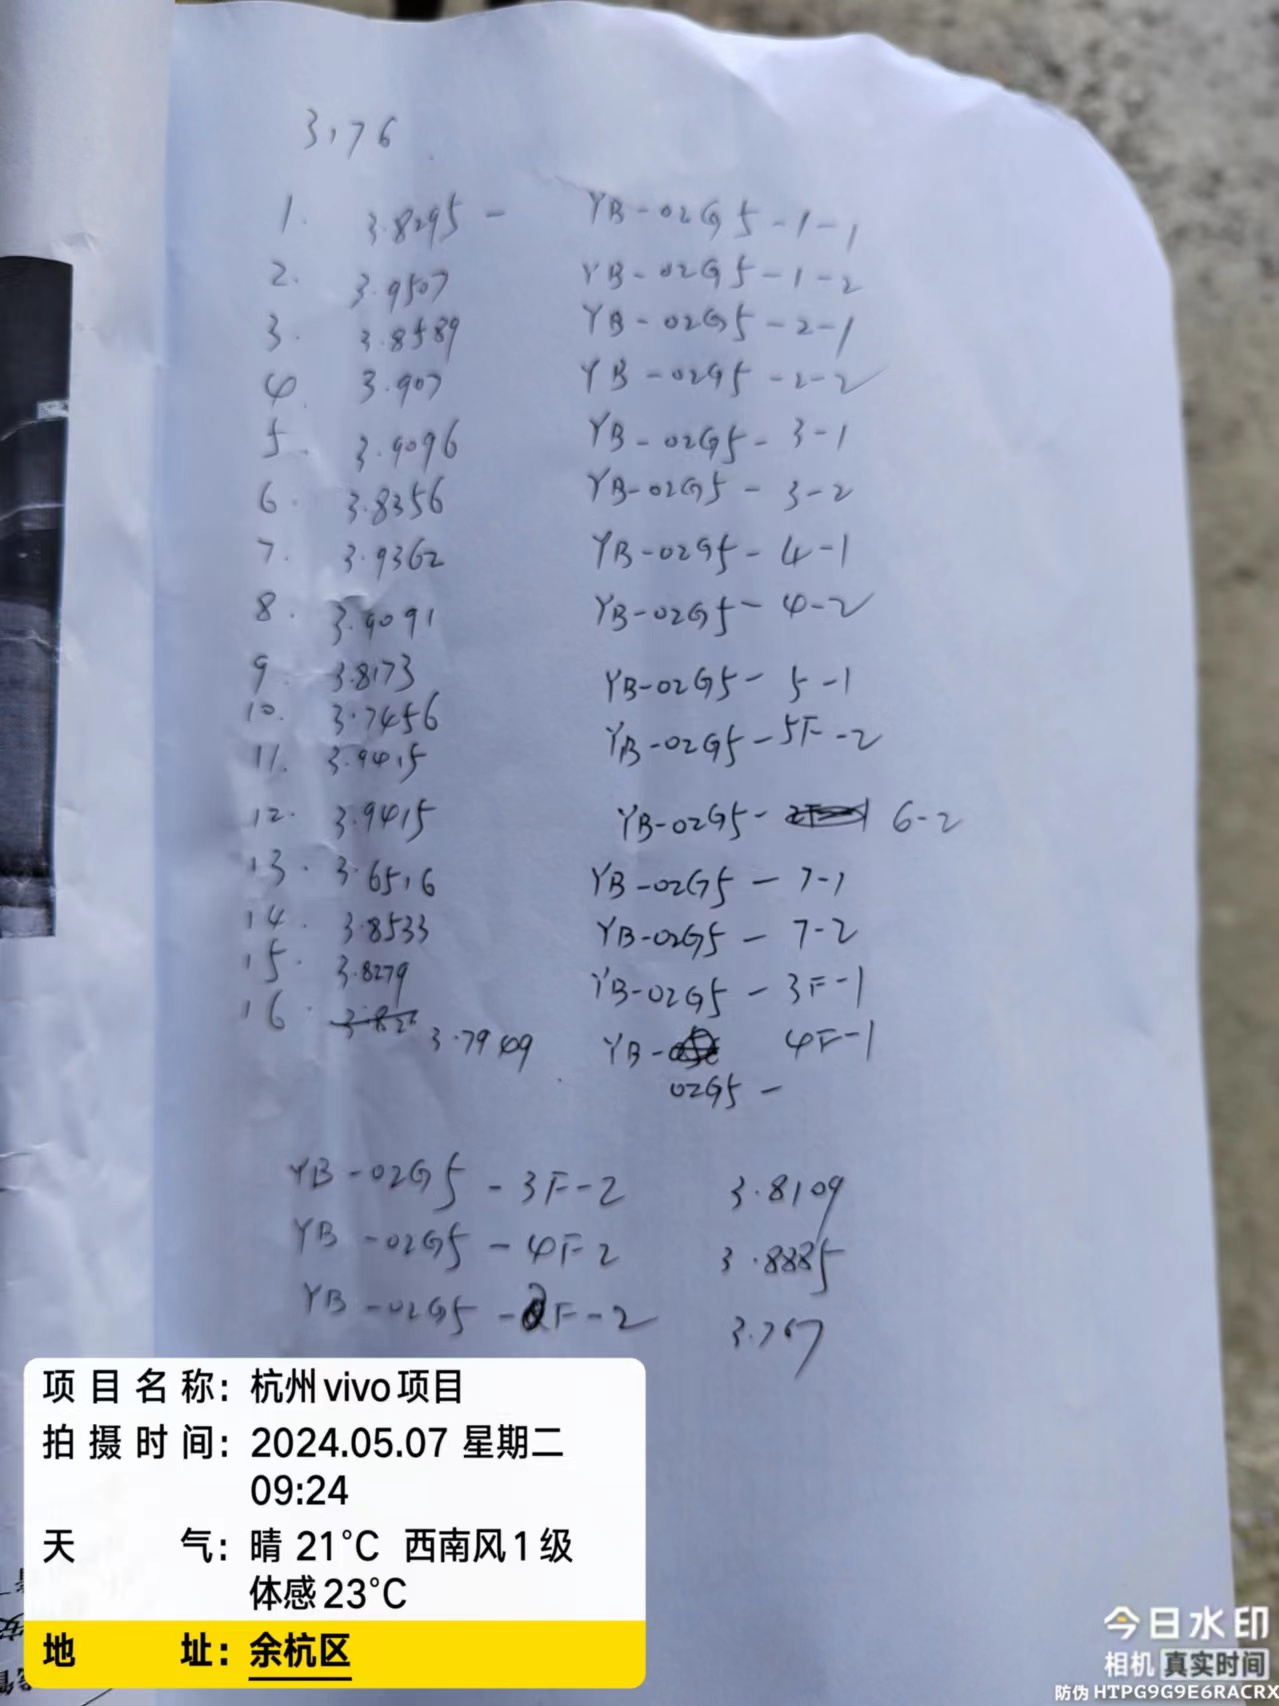 3.76
1. 3.8295 - YB-02G5-1-1
2. 3.9507 YB-02G5-1-2
3. 3.8589 YB-02G5-2-1
4. 3.907 YB-02G5-2-2
5. 3.9096 YB-02G5-3-1
6. 3.8356 YB-02G5-3-2
7. 3.9362 YB-02G5-4-1
8. 3.9091 YB-02G5-4-2
9. 3.8173 YB-02G5-5-1
10. 3.7456 YB-02G5-5F-2
11. 3.9415
12. 3.9415 YB-02G5- 6-2
13. 3.6516 YB-02G5-7-1
14. 3.8533 YB-02G5-7-2
15. 3.8279 YB-02G5-3F-1
16. 3.7949 YB- 4F-1
02G5-
YB-02G5-3F-2 3.8109
YB-02G5-4F-2 3.8885
YB-02G5-2F-2 3.767
项目名称：杭州vivo项目
拍摄时间：2024.05.07 星期二
09:24
天气：晴 21°C 西南风1级
体感23°C
地址：余杭区
今日水印
相机 真实时间
防伪 HTPG9G9E6RACRX